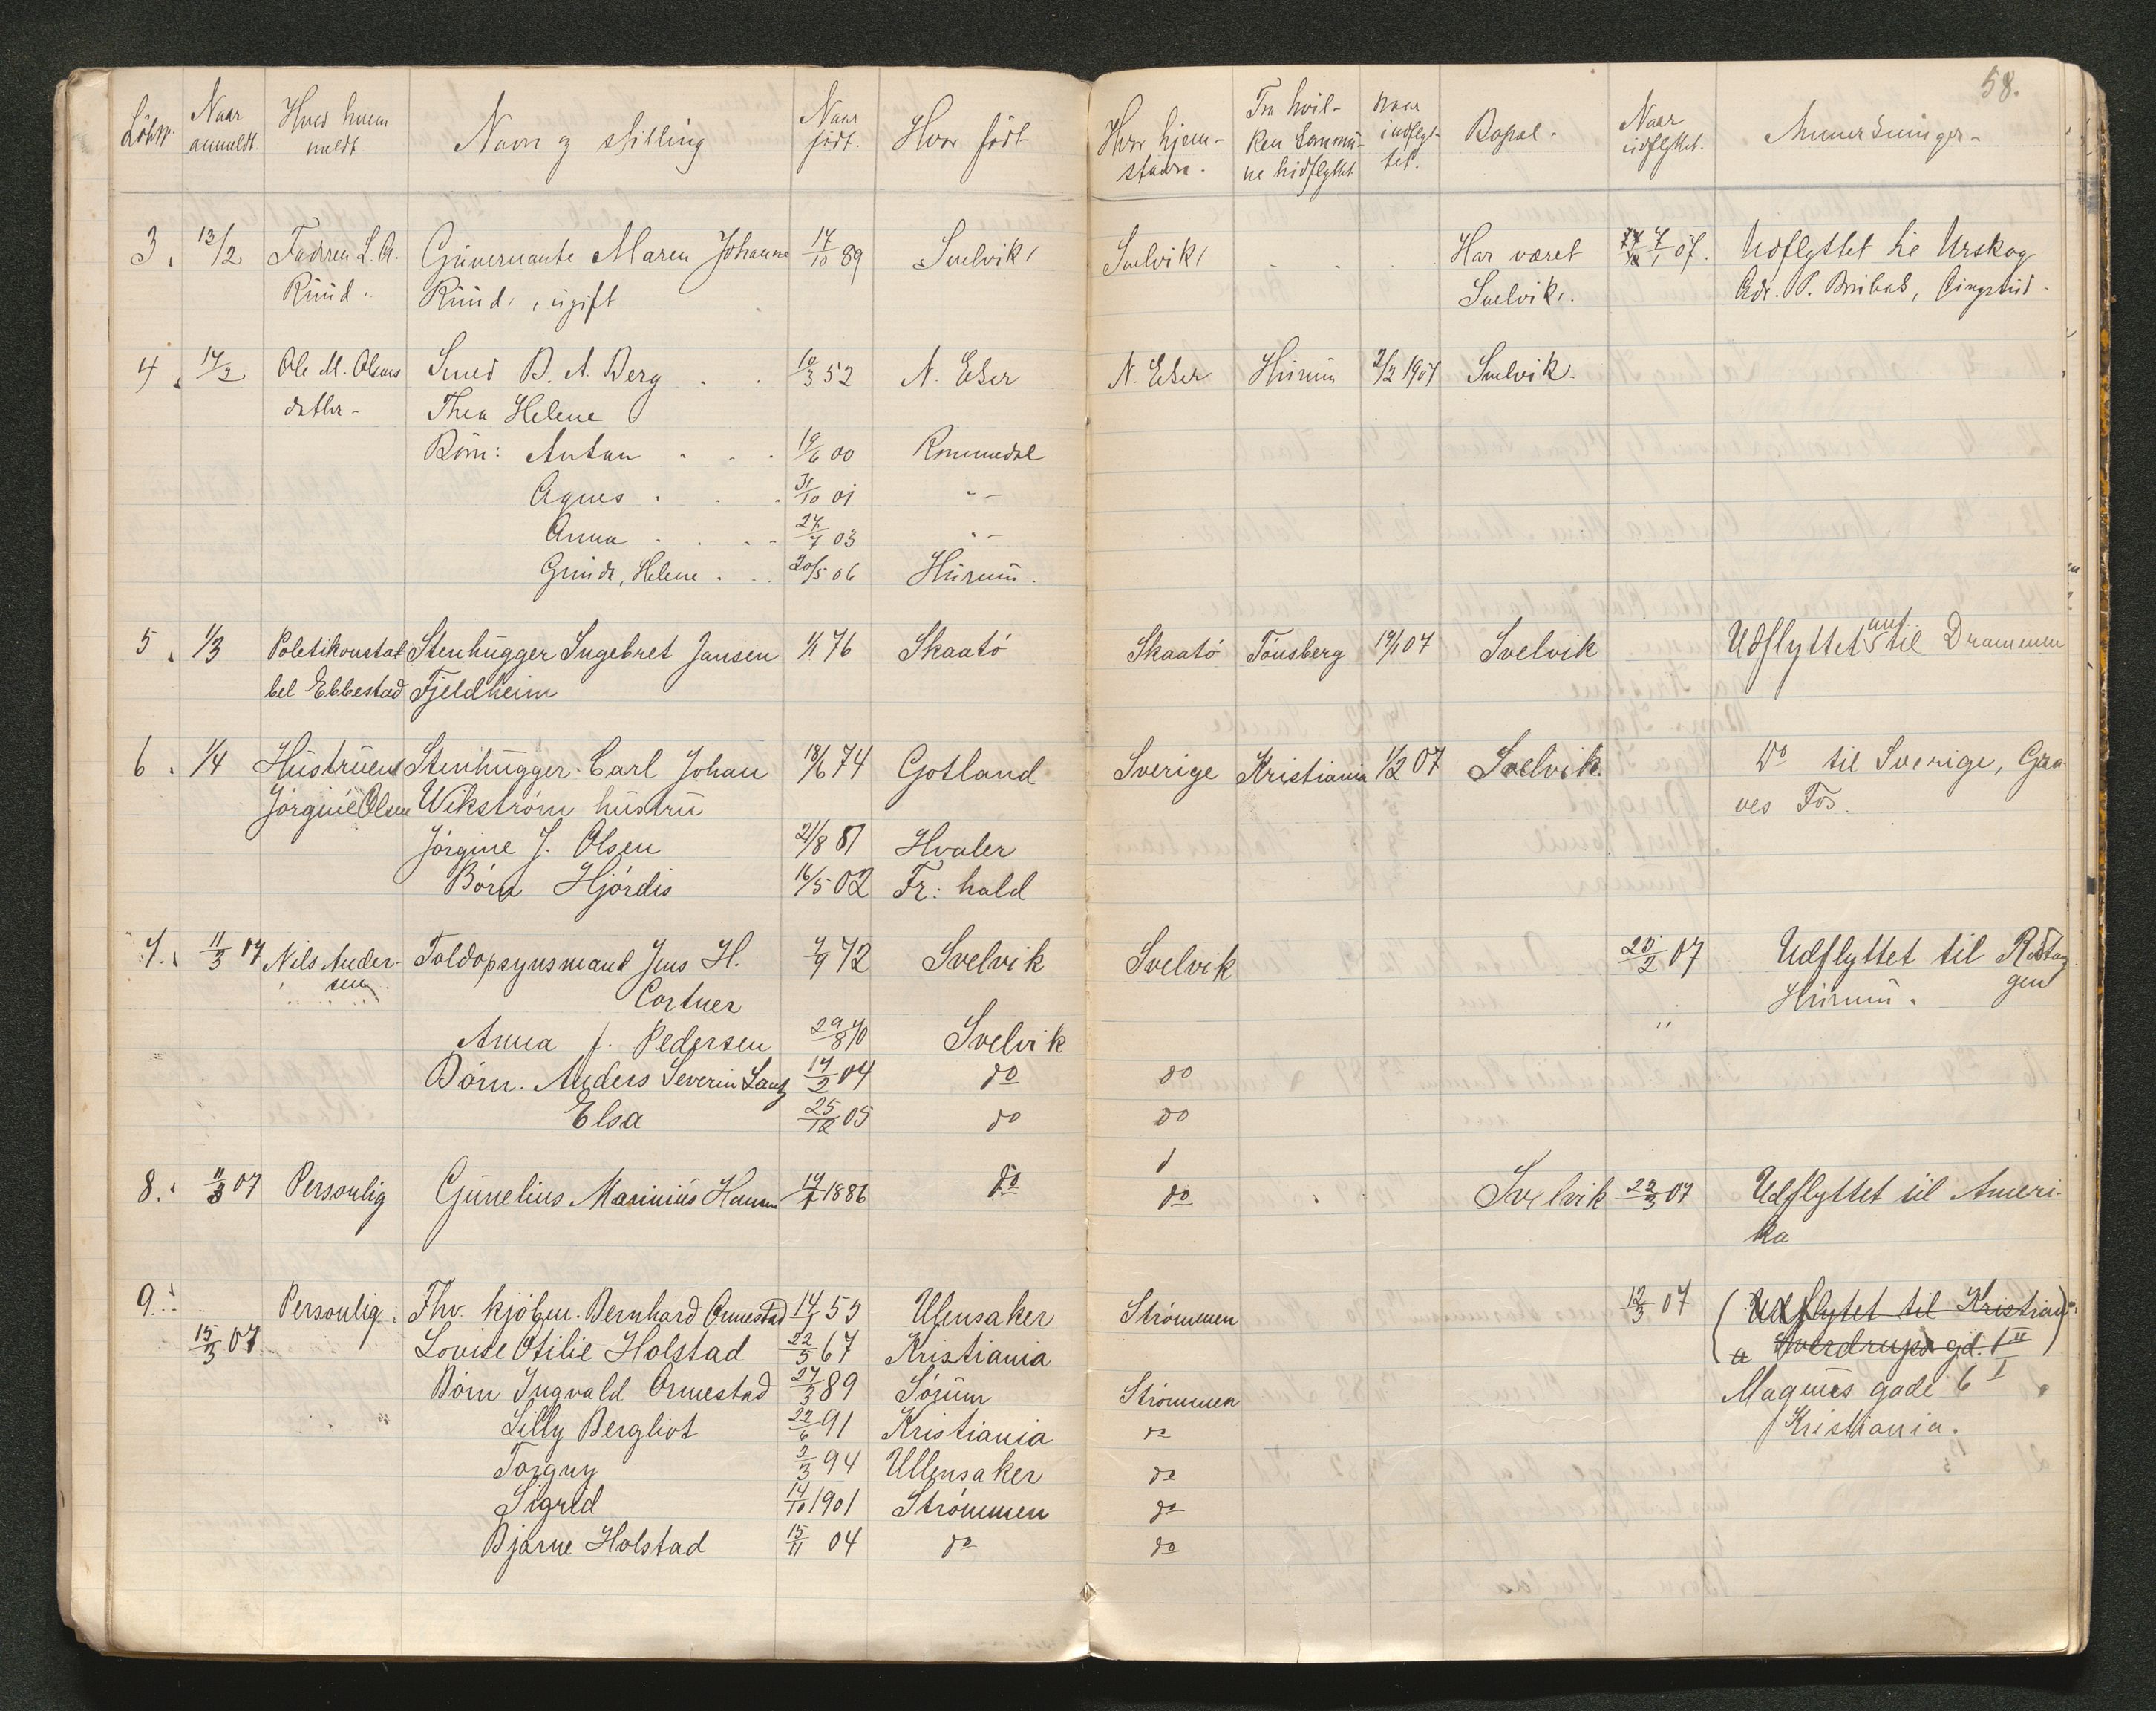 58.
Löbnr. Naar anmeldt. Hvad hvem meldt Navn og stilling Naar født. Hvor født Hvor hjem- stavn. Fra hvil- ken kommu- ne hidflyttet Naar indflyt- tet. Bopæl. Naar udflyttet. Anmerkninger.
3. 13/2 Fadren L. A. Guvernante Maren Johanne 14/10 89 Svelvik Svelvik Har været 7/1 07. Udflyttet til Urskog
Ruud. Ruud, ugift Svelvik. Adr. P.
4. 14/2 Ole M. Olsens Smed B. A. Berg 10/3 52 N. Eker N. Eker Hurum 2/2 1907 Svelvik.
datter Thea Helene
Börn: Anton 19/6 00 Rommedal
Agnes 31/10 01 - -
Anna 27/7 03 - -
Helene 20/5 06 Hurum.
5. 1/3 Politikonstab- Stenhugger Ingebret Jansen 1/1 76 Skaatö Skaatö Tönsberg 19/1 07 Svelvik Udflyttet til Drammen
bel Ebbestad Fjeldheim
6. 1/4 Hustruen Stenhugger Carl Johan 18/6 74 Gotland Sverige Kristiania 1/2 07 Svelvik Do til Sverige, Gra-
Jörgine Olsen Wikström hustru ves Fos.
Jörgine J. Olsen 21/8 81 Hvaler
Börn Hjördis 16/5 02 Fr: hald
7. 11/3 07 Nils Ander- Toldopsynsmand Jens H. 7/9 72 Svelvik Svelvik 25/2 07 Udflyttet til Rödtan
sen Cortner Hurum. gen
Anna f. Pedersen 29/8 70 Svelvik "
Börn. Anders Severin Lantz 14/2 04 do do
Elsa 25/12 05 do do
8. 11/3 07 Personlig Gunelius Marinius Hansen 14/7 1886 do do Svelvik 22/3 07 Udflyttet til Ameri-
ka
9. Personlig. Fhv. kjöbm. Bernhard Ormestad 14/1 53 Ulensaker Strömmen 12/3 07 (Udflytet til Kristian
15/3 07 Lovise Otilie Holstad 22/5 67 Kristiania a Sverdrups gd. 1 II)
Börn Ingvald Ormestad 27/3 89 Sörum Strömmen Magnus gade 6 I
Lilly Bergliot 22/6 91 Kristiania do Kristiania.
Torguy 2/3 94 Ullensaker do
Sigrid 14/10 1901 Strömmen do
Bjarne Holstad 15/11 04 do do